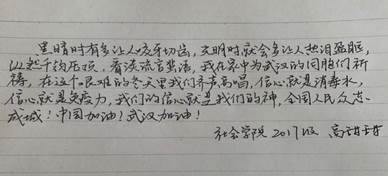 黑暗时有多让人咬牙切齿，文明时就会多让人热泪盈眶，
以起千钧压顶，看流流言蜚语，我在家中为武汉的同胞们祈
祷，在这个艰难的冬天里我们齐声高唱，信心就是消毒水，
信心就是免疫力，我们的信心就是我们的神，全国人民众志
成城！中国加油！武汉加油！
社会学院 2017级 高甜甜